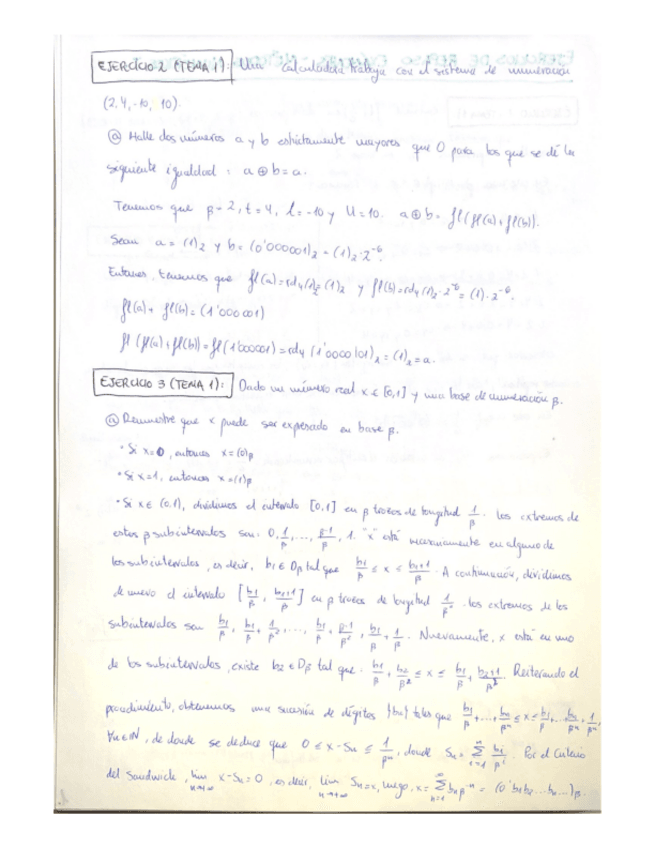 EJERCICIO 2 (TEMA 1): Una calculadora trabaja con el sistema de numeración
(2, 4, -10, 10)
ⓐ Halle dos números a y b estrictamente mayores que 0 para los que se dé la
siguiente igualdad: a ⊕ b = a.
Tenemos que β = 2, t = 4, L = -10 y U = 10. a ⊕ b = fl(fl(a) + fl(b)).
Sean a = (1)₂ y b = (0'000001)₂ = (1)₂·2⁻⁶
Entonces, tenemos que fl(a) = rd₄(1)₂ = (1)₂ y fl(b) = rd₄(1)₂·2⁻⁶ = (1)·2⁻⁶
fl(a) + fl(b) = (1'000001)
fl(fl(a) + fl(b)) = fl(1'000001) = rd₄(1'0000101)₂ = (1)₂ = a.
EJERCICIO 3 (TEMA 1): Dado un número real x ∈ [0,1] y una base de numeración β.
ⓐ Demuestre que x puede ser expresado en base β.
· Si x = 0, entonces x = (0)β
· Si x = 1, entonces x = (1)β
· Si x ∈ (0,1), dividimos el intervalo [0,1] en β trozos de longitud 1/β. Los extremos de
estos β subintervalos son: 0, 1/β, ..., β-1/β, 1. "x" está necesariamente en alguno de
los subintervalos, es decir, b₁ ∈ Dβ tal que b₁/β ≤ x ≤ b₁+1/β. A continuación, dividimos
de nuevo el intervalo [b₁/β, b₁+1/β] en β trozos de longitud 1/β². Los extremos de los
subintervalos son b₁/β, b₁/β + 1/β², ..., b₁/β + β-1/β², b₁/β + 1/β. Nuevamente, x está en uno
de los subintervalos, existe b₂ ∈ Dβ tal que b₁/β + b₂/β² ≤ x ≤ b₁/β + b₂+1/β². Reiterando el
procedimiento, obtenemos una sucesión de dígitos {bₙ} tales que b₁/β + ... + bₙ/βⁿ ≤ x ≤ b₁/β + ... bₙ/βⁿ + 1/βⁿ,
∀n ∈ ℕ, de donde se deduce que 0 ≤ x - Sₙ ≤ 1/βⁿ, donde Sₙ = Σⁿᵢ₌₁ bᵢ/βⁱ. Por el Criterio
del Sandwich, lim n→+∞ x - Sₙ = 0, es decir, lim n→+∞ Sₙ = x, luego, x = Σ∞ₙ₌₁ bₙβ⁻ⁿ = (0'b₁b₂...bₙ...)β.